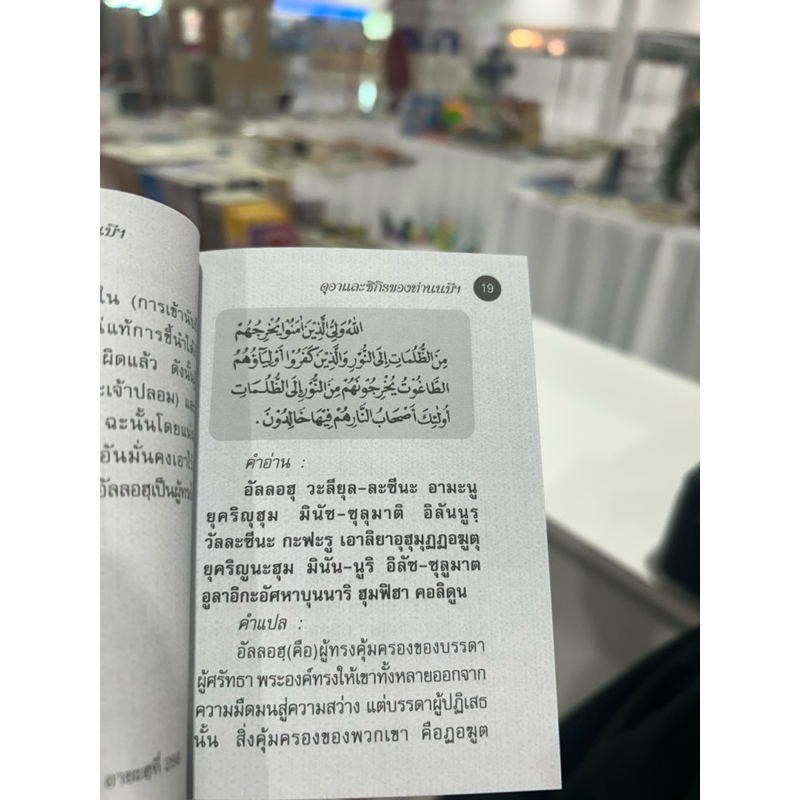 ใน (การเข้านับ
แท้การชี้นำได้
ผิดแล้ว ดังนั้น
ะเจ้าปลอม) และ
ฉะนั้นโดยแน่
อันมั่นคงเอาไว้
อัลลอฮฺเป็นผู้ทรง
อายะฮฺที่ 256
ดุอาและซิกิรของท่านนบีฯ 19
اللهُ وَلِيُّ الَّذِيْنَ اٰمَنُوْا يُخْرِجُهُمْ
مِنَ الظُّلُمَاتِ اِلَى النُّوْرِ وَالَّذِيْنَ كَفَرُوْا اَوْلِيَاؤُهُمُ
الطَّاغُوْتُ يُخْرِجُوْنَهُمْ مِنَ النُّوْرِ اِلَى الظُّلُمَاتِ
اُولٰئِكَ اَصْحَابُ النَّارِ هُمْ فِيْهَا خَالِدُوْنَ .
คำอ่าน :
อัลลอฮุ วะลียุล-ละซีนะ อามะนู
ยุคริญุฮุม มินัซ-ซุลุมาติ อิลันนูรฺ
วัลละซีนะ กะฟะรู เอาลิยาอุฮุมุฏฏอฆูตุ
ยุคริญูนะฮุม มินัน-นูริ อิลัซ-ซุลูมาต
อูลาอิกะอัศหาบุนนาริ ฮุมฟิฮา คอลิดูน
คำแปล :
อัลลอฮฺ(คือ)ผู้ทรงคุ้มครองของบรรดา
ผู้ศรัทธา พระองค์ทรงให้เขาทั้งหลายออกจาก
ความมืดมนสู่ความสว่าง แต่บรรดาผู้ปฏิเสธ
นั้น สิ่งคุ้มครองของพวกเขา คือฏอฆูต